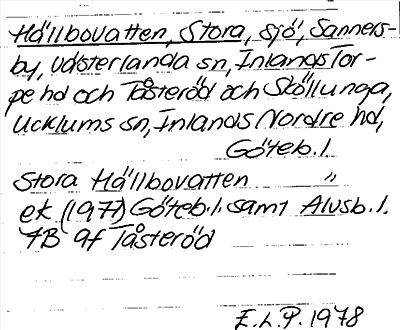 Hällbovatten, Stora, sjö, Sanners-
by, Västerlanda sn, Inlands Tor-
pe hd och Tåsteröd och Sköllunga,
Ucklums sn, Inlands Nordre hd,
Göteb.l.
Stora Hällbovatten "
ek (1977) Göteb.l. samt Älvsb.l.
7B 9f Tåsteröd
E.L.P. 1978